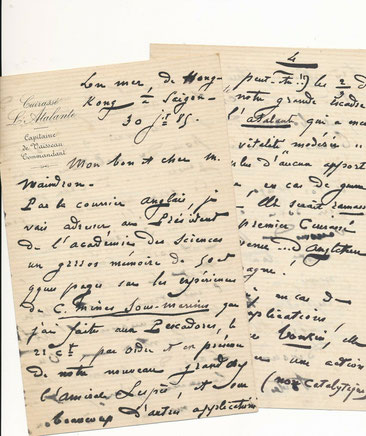 Cuirassé
L'Atalante
Capitaine
de Vaisseau
Commandant
En mer, de Hong-
Kong à Saigon
30 85.
Mon bon et cher M.
Maindron
Par le courrier Anglais, je
vais adresser au Président
de l'académie des Sciences
un gros mémoire de
pages sur les expériences
de C. mines Sous-Marines que
j'ai faites aux Pescadores, le
21 ct, par ordre et en présence
de notre nouveau grand chef
l'amiral Lespès, et sur
beaucoup d'autres applications
4
peut-être!!) les 2/3 d
notre grande Escadre
l'Atalante qui a
vitalité modérée
d'aucun apport
en cas de guerre
elle serait jamais
premier Cuirassé
venue d'Angleterre
en cas de
applications!
Tonkin, elle
une action
(non Catalytique